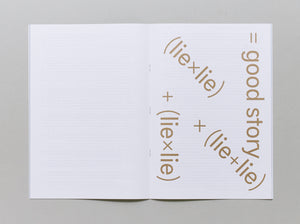 (lie×lie)
+
(lie×lie)
+
(lie+lie)
= good story